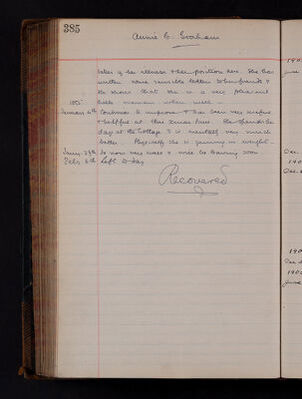 385
Annie C. Graham
takes of her illness & her position here. She has
written some sensible letters to her friends &
she shows that she is a very pleasant
little woman when well.
1905
January 6th Continues to improve & has been very useful
& helpful at this Xmas time. She spends the
day at the Cottage & is mentally very much
better. Physically she is gaining in weight.
Jany 29th Is now very well & will be leaving soon
Feby 6th Left to-day
Recovered
190
June
Dec.
190
Dec.
190
Dec.
190
June